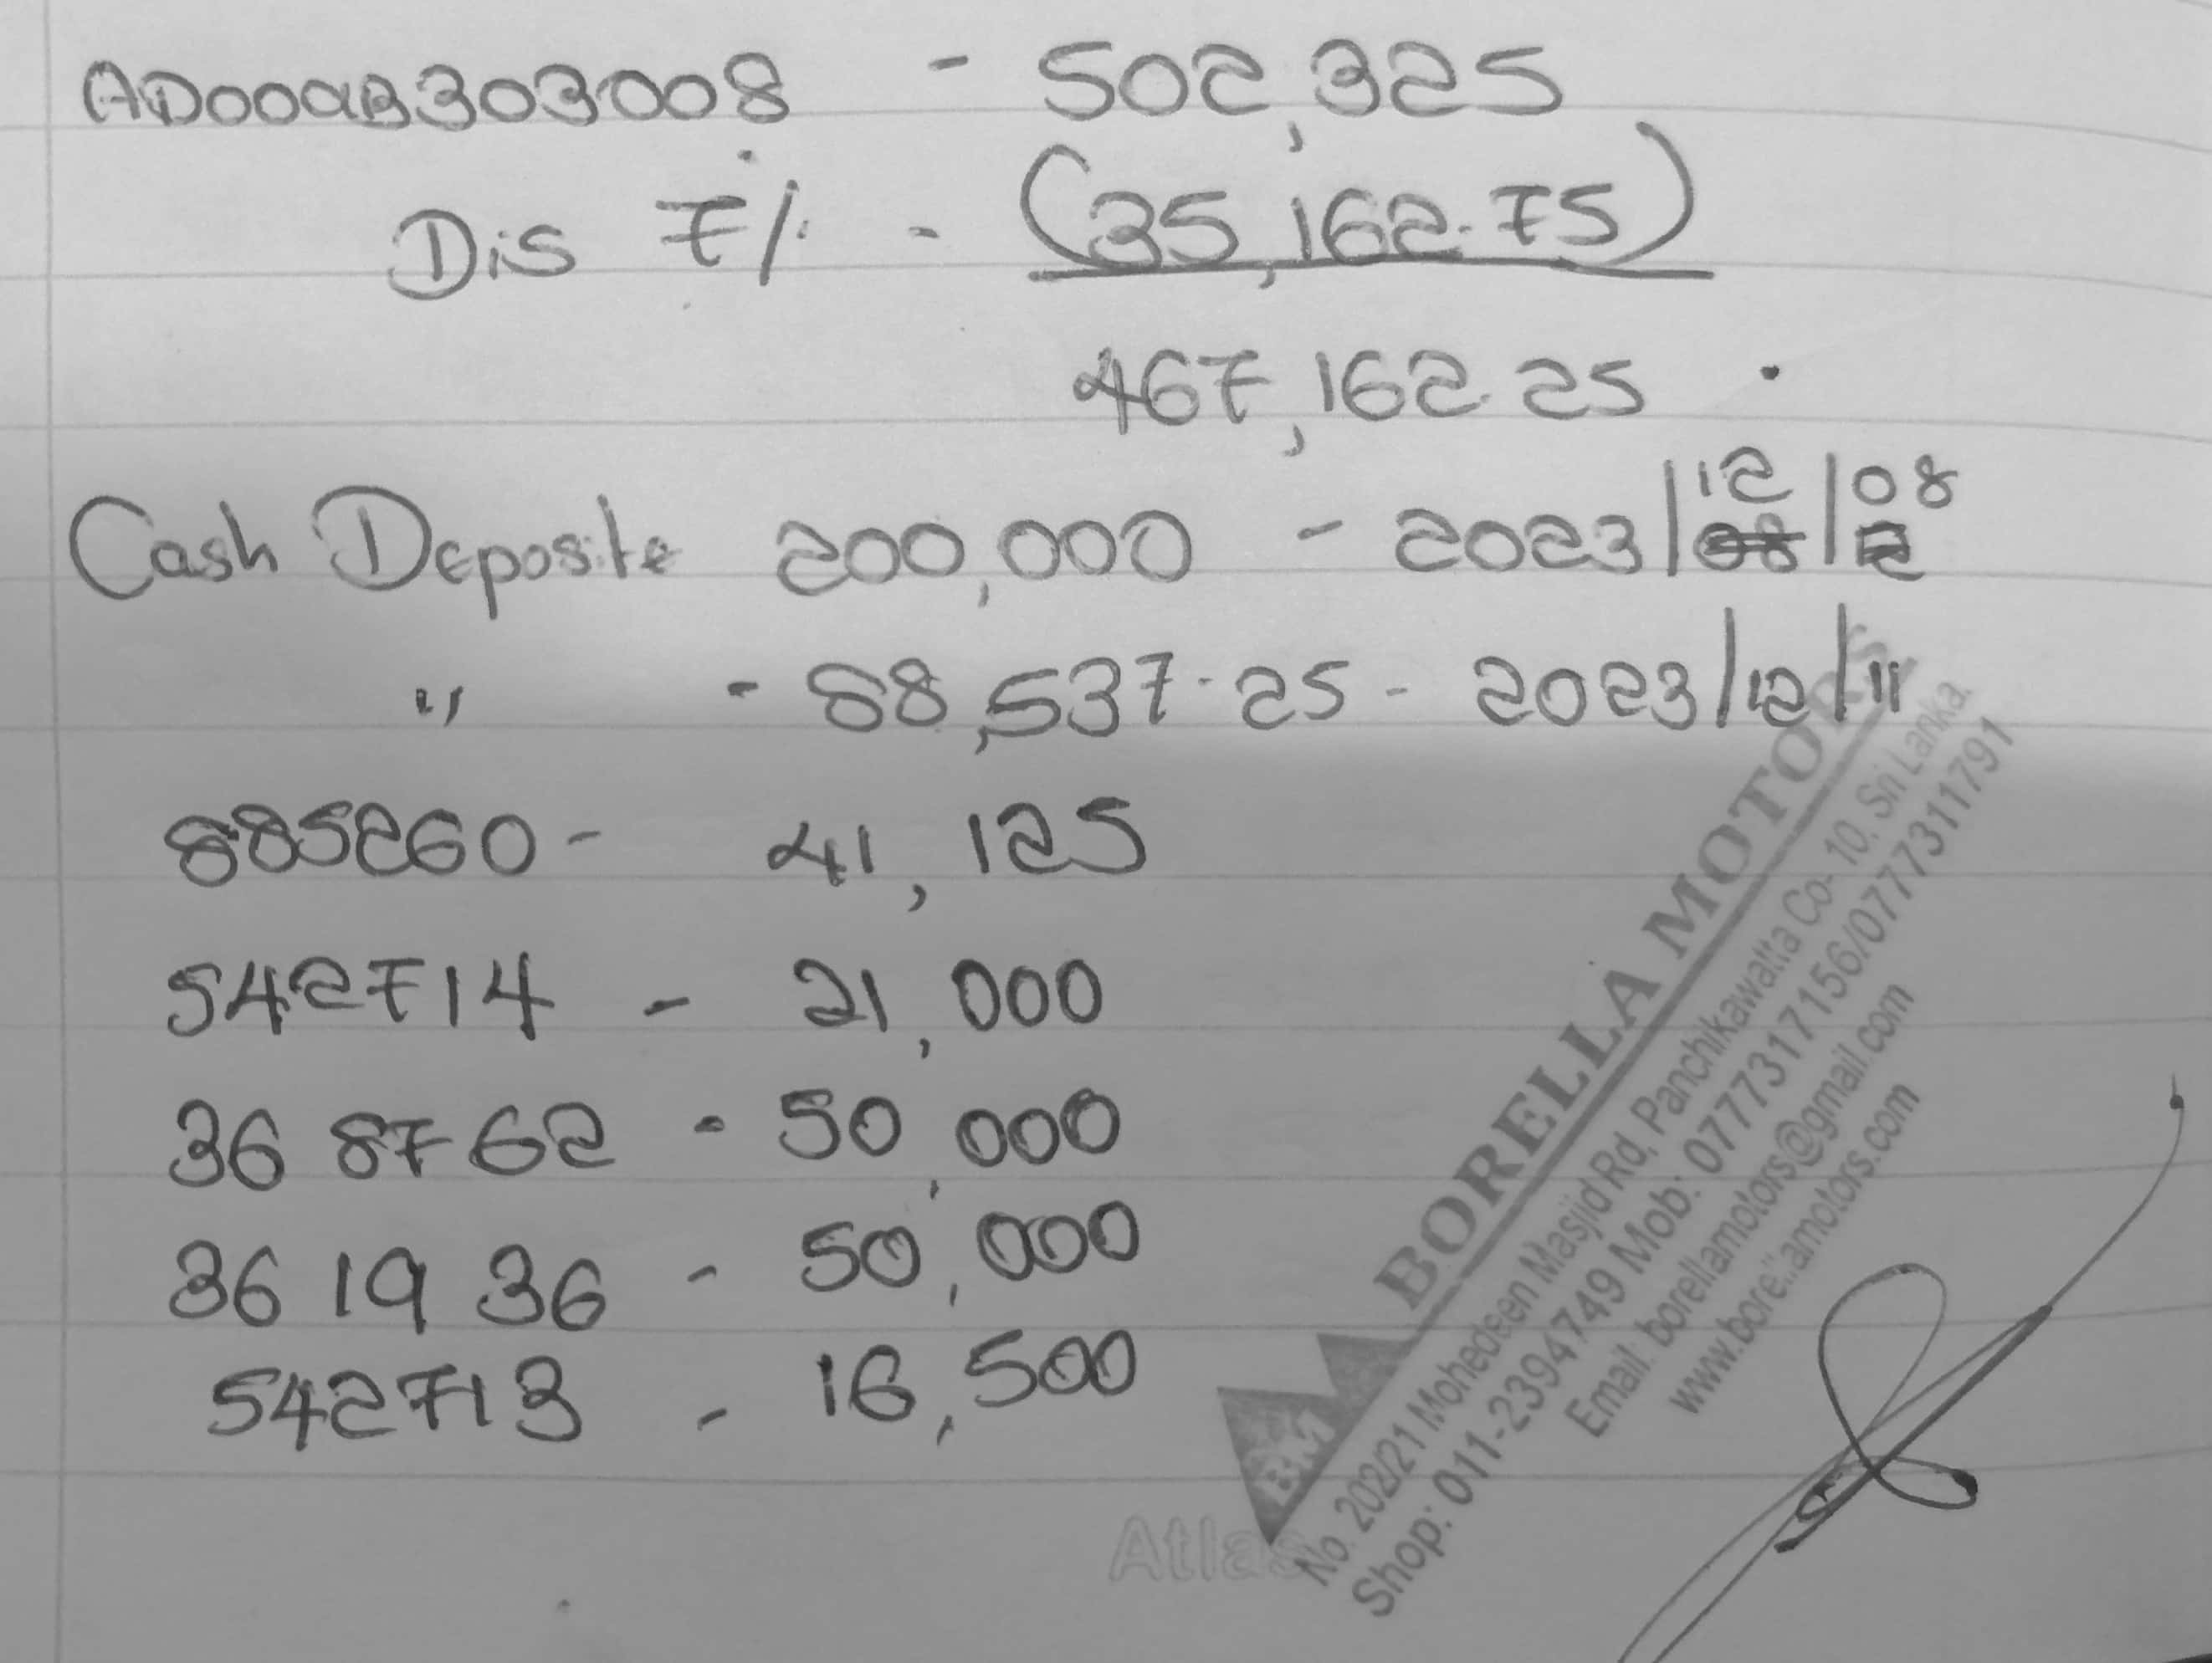 AD009B303008 - 502,325
Dis 7% - (35,162.75)
467,162.25
Cash Deposite 200,000 - 2023/12/08
" - 88,537.25 - 2023/12/11
885260 - 41,125
542714 - 21,000
368762 - 50,000
361936 - 50,000
542713 - 16,500
BORELLA MOTORS
No. 202/21 Mohedeen Masjid Rd, Panchikawatta Co-10, Sri Lanka.
Shop: 011-2394749 Mob: 0777317156/0777311791
Email: borellamotors@gmail.com
www.borellamotors.com
BM
Atlas